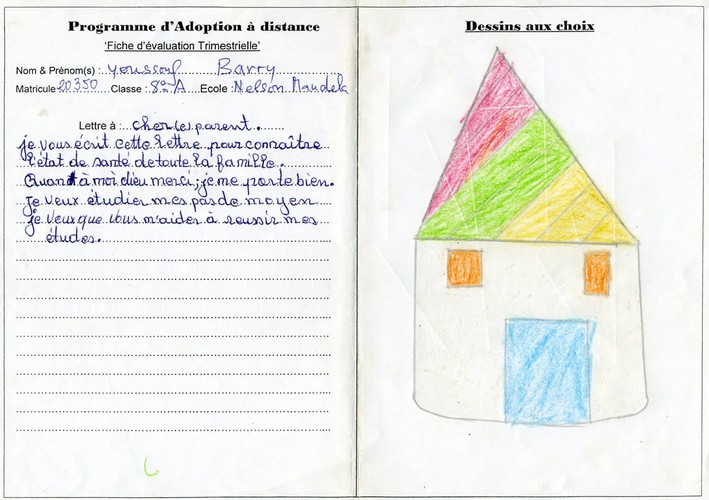 Programme d'Adoption à distance
'Fiche d'évaluation Trimestrielle'
Nom & Prénom(s) : Youssouf Barry
Matricule 20350 Classe : 8e A Ecole : Nelson Mandela
Lettre à : cher(e) parent.
je vous écrit cette lettre pour connaître
l'état de santé de toute la famille.
Quand à moi dieu merci; je me porte bien.
Je veux étudier mes pas de moyen
je veux que vous m'aider à reussir mes
études.
Dessins aux choix